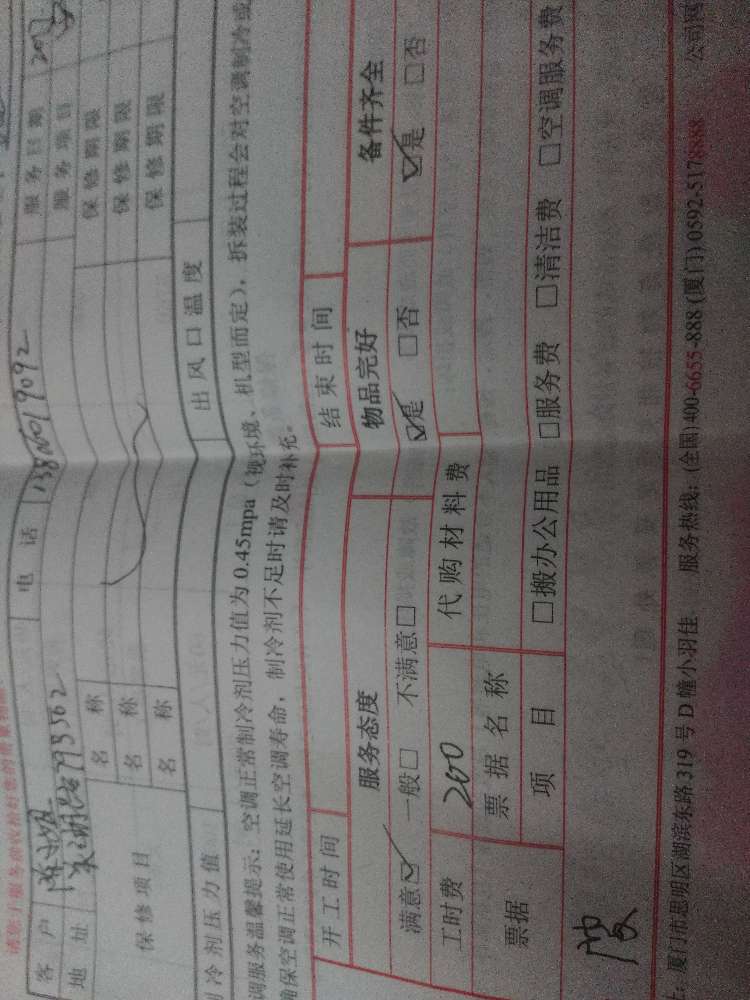 客户 电话 服务日期
地址 服务项目
保修项目 名称 保修期限
名称 保修期限
名称 保修期限
制冷剂压力值 出风口温度
调服务温馨提示：空调正常制冷剂压力值为0.45mpa（视环境、机型而定），拆装过程会对空调制冷或
确保空调正常使用延长空调寿命，制冷剂不足时请及时补充。
开工时间 结束时间
服务态度 物品完好 备件齐全
满意☑ 一般□ 不满意□ ☑是 □否 ☑是 □否
工时费 200 代购材料费
票据 票据名称
项目 □搬办公用品 □服务费 □清洁费 □空调服务费
：厦门市思明区湖滨东路319号D幢小羽佳 服务热线：(全国)400-6655-888 (厦门)0592-5178888 公司网